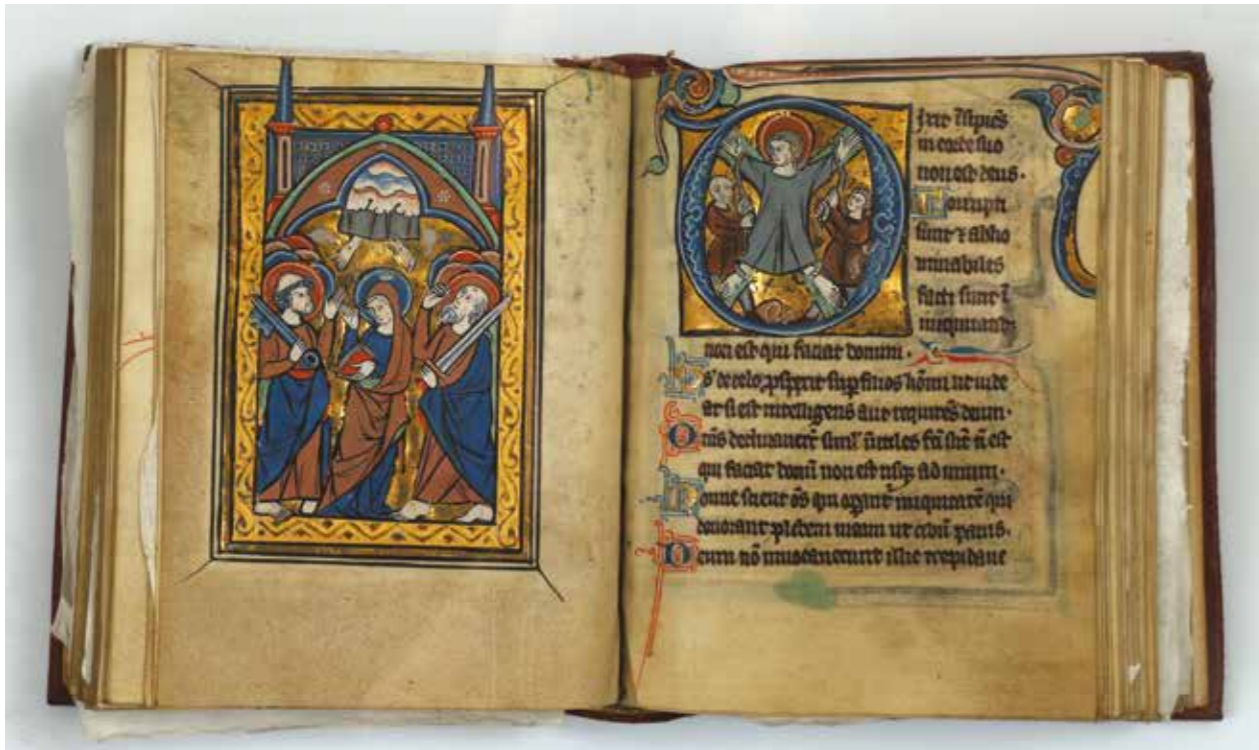 Dixit īsipiēs
in corde suo
non est deus.
Corrupti
sunt ⁊ abho
minabiles
facti sunt ī
iniquitatib;
non est qui faciat bonum.
Ds̄ de celo ꝓspexit suꝑ filios hōīnū ut uide
at si est intelligens aut requirēs deum.
Om̄s declinauer̄t siml̓ īutiles fc̄i sūt n̄ est
qui faciat bonū non est usq; ad unum.
Nonne scient om̄s qui oꝑant̄ iniquitatē qui
deuorant plebem meam ut cibū panis.
Deum nō inuocauerunt illic trepidaue